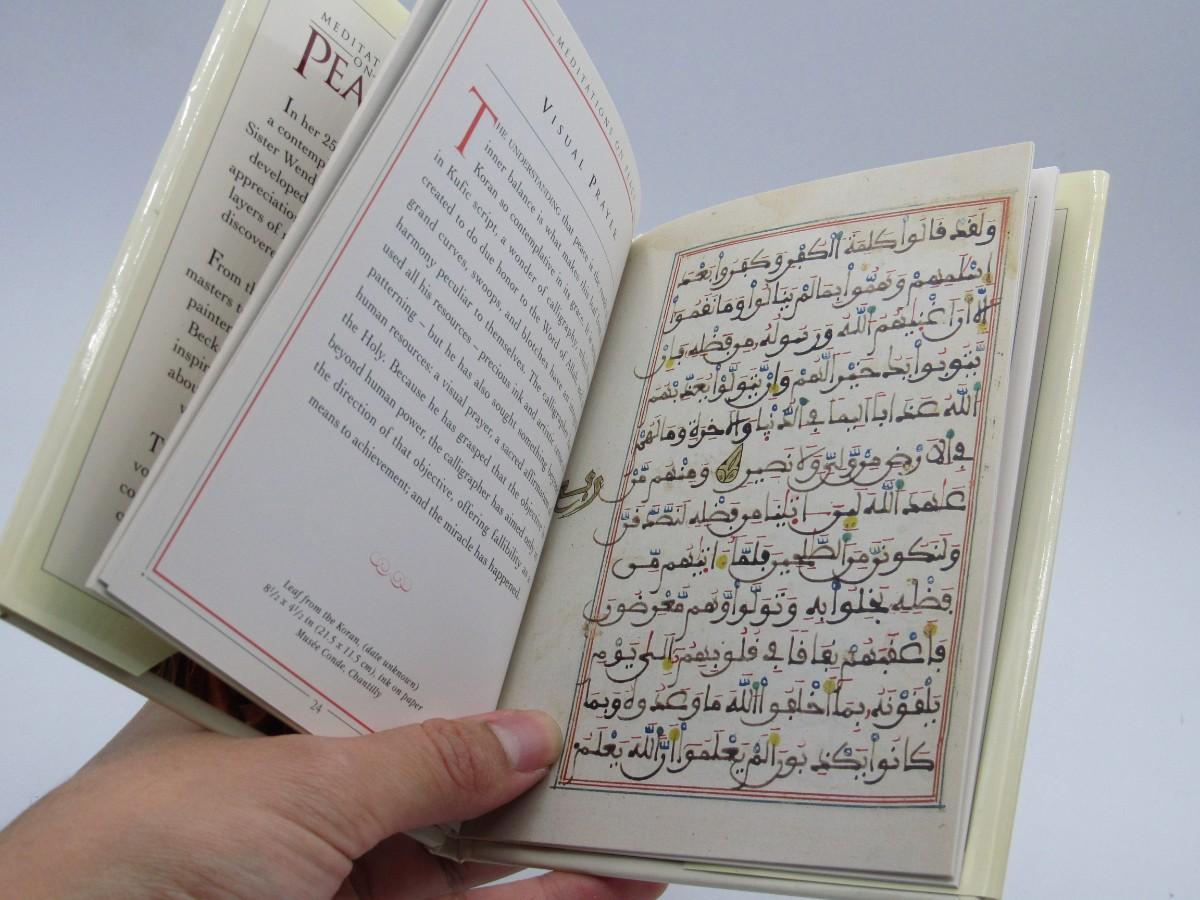 MEDITAT
ON
PEA
In her 25
a contemp
Sister Wend
developed
appreciation
layers of
discovere
From th
masters t
painter
Beck
inspir
abou
MEDITATIONS ON
VISUAL PRAYER
THE UNDERSTANDING that peace is the
inner balance is what makes this leaf
Koran so contemplative in its grace. It is
in Kufic script, a wonder of calligraphy,
created to do due honor to the Word of
grand curves, swoops, and blotches have an
harmony peculiar to themselves. The calligrapher
used all his resources – precious ink and artistic
patterning – but he has also sought something
human resources: a visual prayer, a sacred affirmation
the Holy. Because he has grasped that the objective
beyond human power, the calligrapher has aimed only
the direction of that objective, offering fallibility as a
means to achievement; and the miracle has happened.
Leaf from the Koran, (date unknown)
8½ x 4½ in (21.5 x 11.5 cm), ink on paper
Musée Conde, Chantilly
24
ولقد قالوا كلمة الكفر وكفروا بعد
إسلمهم وهموا بما لم ينالوا وما نقموا
إلا أن أغنيهم الله ورسوله من فضله فإن
يتوبوا يك خيرا لهم وإن يتولوا يعذبهم
الله عذابا أليما في الدنيا والاخرة وما لهم
في الارض من ولي ولا نصير ومنهم من
عهد الله لين اتينا من فضله لنصدقن
ولنكونن من الصلحين فلما اتيهم من
فضله بخلوا به وتولوا وهم معرضون
فأعقبهم نفاقا في قلوبهم إلى يوم
يلقونه بما أخلفوا الله ما وعدوه وبما
كانوا يكذبون ألم يعلموا أن الله يعلم